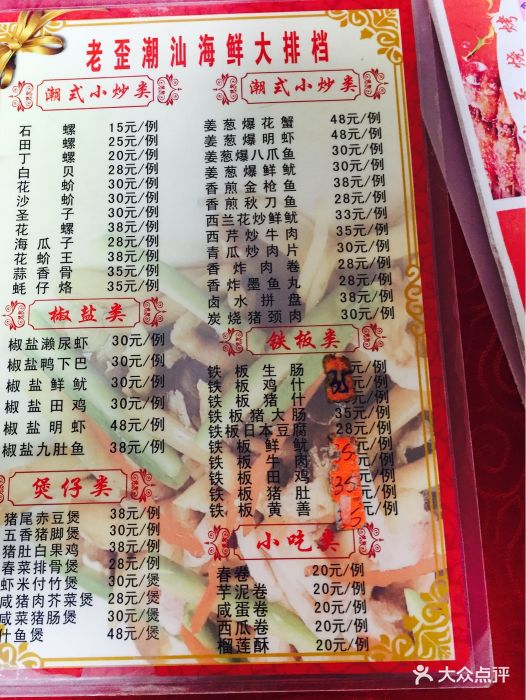 老歪潮汕海鲜大排档
潮式小炒类
石螺 15元/例
田螺 25元/例
丁螺 20元/例
白贝 28元/例
花蚧 30元/例
沙蚧 30元/例
圣子 30元/例
花螺 38元/例
海瓜子 28元/例
花蚧王 38元/例
蒜香骨 35元/例
蚝仔烙 35元/例
椒盐类
椒盐濑尿虾 30元/例
椒盐鸭下巴 30元/例
椒盐鲜鱿 30元/例
椒盐田鸡 30元/例
椒盐明虾 48元/例
椒盐九肚鱼 38元/例
煲仔类
猪尾赤豆煲 38元/煲
五香猪脚煲 30元/煲
猪肚白果鸡 38元/煲
春菜排骨煲 28元/煲
虾米付竹煲 30元/煲
咸猪肉芥菜煲 28元/煲
咸菜猪肠煲 30元/煲
什鱼煲 48元/煲
潮式小炒类
姜葱爆花蟹 48元/例
姜葱爆明虾 48元/例
姜葱爆八爪鱼 30元/例
姜葱爆鲜鱿 30元/例
香煎金枪鱼 38元/例
香煎秋刀鱼 28元/例
西兰花炒鲜鱿 33元/例
西芹炒牛肉 35元/例
青瓜炒肉片 30元/例
香炸肉卷 28元/例
香炸墨鱼丸 28元/例
卤水拼盘 38元/例
炭烧猪颈肉 30元/例
铁板类
铁板生肠
铁板鸡什
铁板猪什
铁板猪大肠 35元/例
铁板日本豆腐 28元/例
铁板鲜鱿
铁板牛肉
铁板田鸡
铁板猪肚
铁板黄善
小吃类
春卷 20元/例
芋泥卷 20元/例
咸蛋卷 20元/例
西瓜卷 20元/例
榴莲酥 20元/例
大众点评